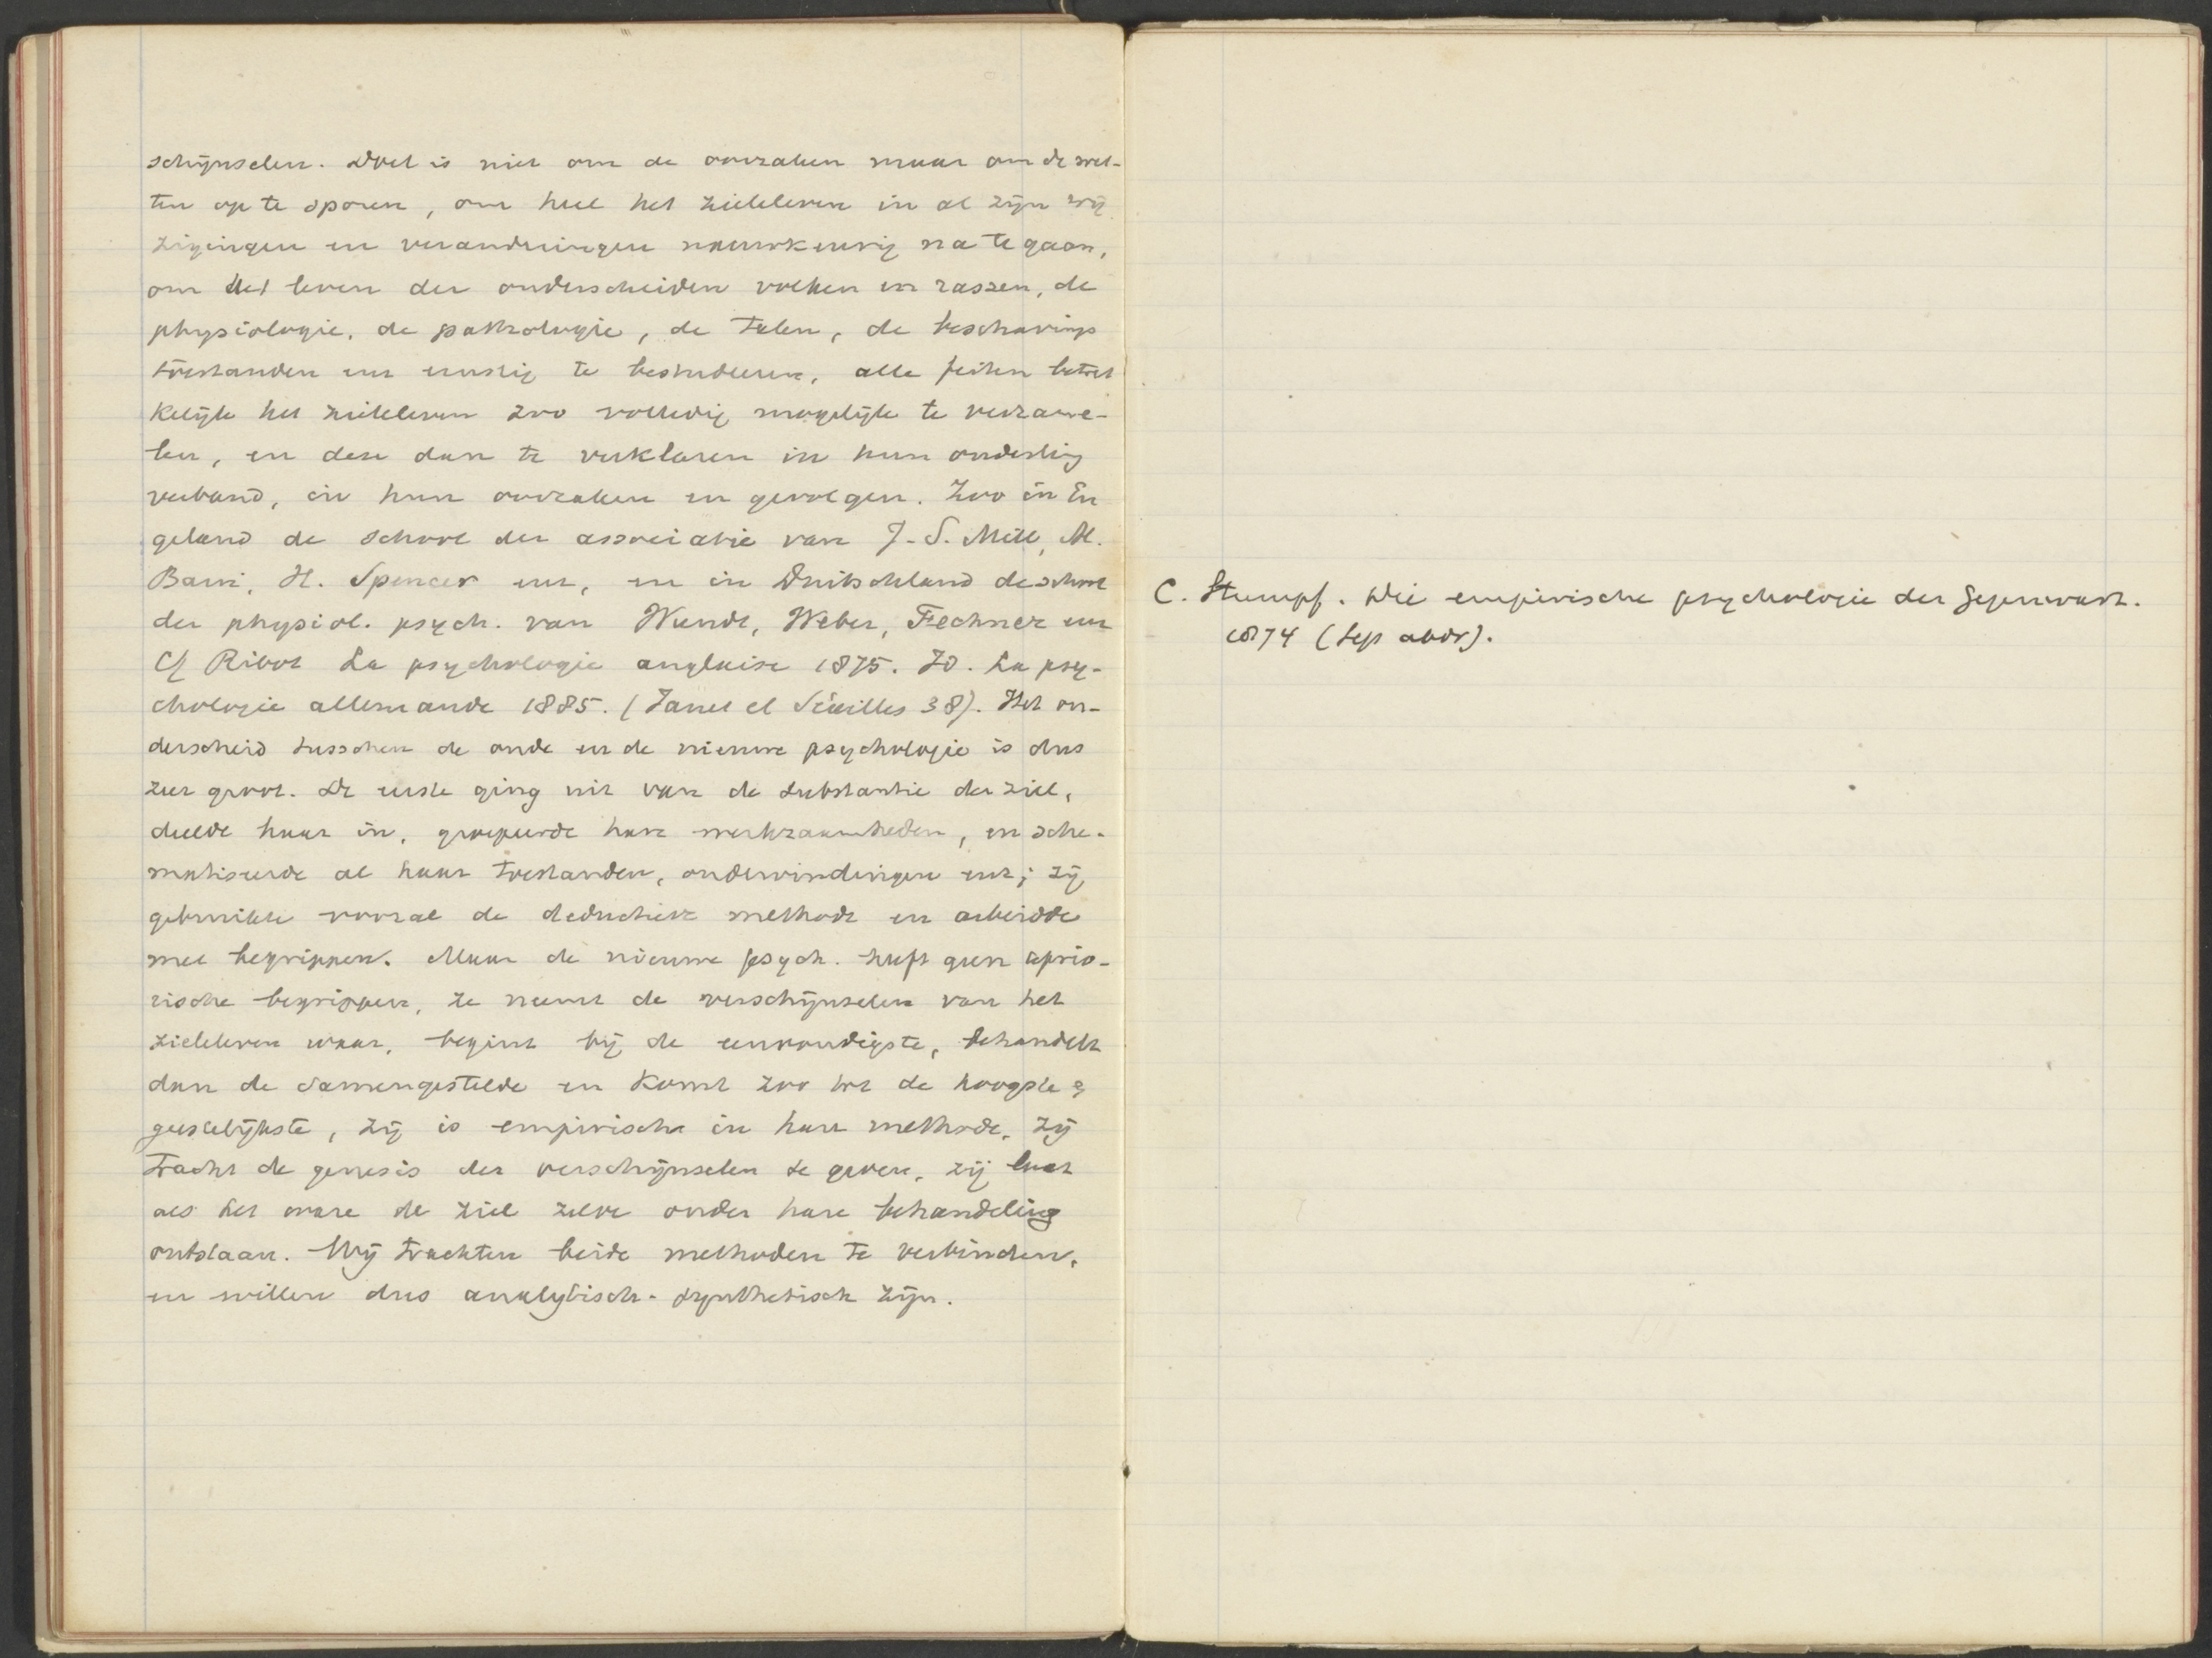 schijnselen. Doel is niet om de oorzaken maar om de wet-
ten op te sporen, om heel het zieleleven in al zijn wij
zigingen en veranderingen nauwkeurig na te gaan,
om het leven der onderscheiden volken en rassen, de
physiologie, de pathologie, de talen, de beschavings
toestanden enz ernstig te bestudeeren, alle feiten betrek
kelijk het zieleleven zoo volledig mogelijk te verzame-
len, en deze dan te verklaren in hun onderling
verband, in hun oorzaken en gevolgen. Zoo in En
geland de school der associatie van J. S. Mill, Al.
Bain, H. Spencer enz, en in Duitschland de school
der physiol. psych. van Wundt, Weber, Fechner enz
Cf Ribot La psychologie anglaise 1875. Id. La psy-
chologie allemande 1885. (Janet et Séailles 38). Het on-
derscheid tusschen de oude en de nieuwe psychologie is dus
zeer groot. De eerste ging uit van de substantie der ziel,
deelde haar in, groepeerde hare werkzaamheden, en sche-
matiseerde al haar toestanden, ondervindingen enz; zij
gebruikte vooral de deductieve methode en arbeidde
met begrippen. Maar de nieuwe psych. heeft geen aprio-
rische begrippen, ze neemt de verschijnselen van het
zieleleven waar, begint bij de eenvoudigste, behandelt
dan de samengestelde en komt zoo tot de hoogste &
geestelijkste, zij is empirische in hare methode, zij
tracht de genesis der verschijnselen te geven, zij laat
als het ware de ziel zelve onder hare behandeling
ontstaan. Wij trachten beide methoden te verbinden,
en willen dus analytisch-synthetisch zijn.
C. Stumpf. Die empirische psychologie der Gegenwart.
1874 (Sep abdr).